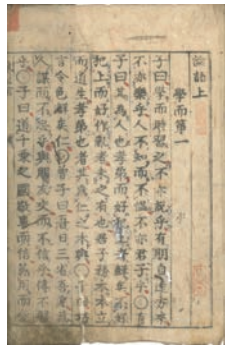 論語上
學而第一
子曰學而時習之不亦說乎有朋自遠方來
不亦樂乎人不知而不慍不亦君子乎〇有
子曰其爲人也孝弟而好犯上者鮮矣不好
犯上而好作亂者未之有也君子務本本立
而道生孝弟也者其爲仁之本與〇子曰巧
言令色鮮矣仁〇曾子曰吾日三省吾身爲
人謀而不忠乎與朋友交而不信乎傳不習
乎〇子曰道千乘之國敬事而信節用而